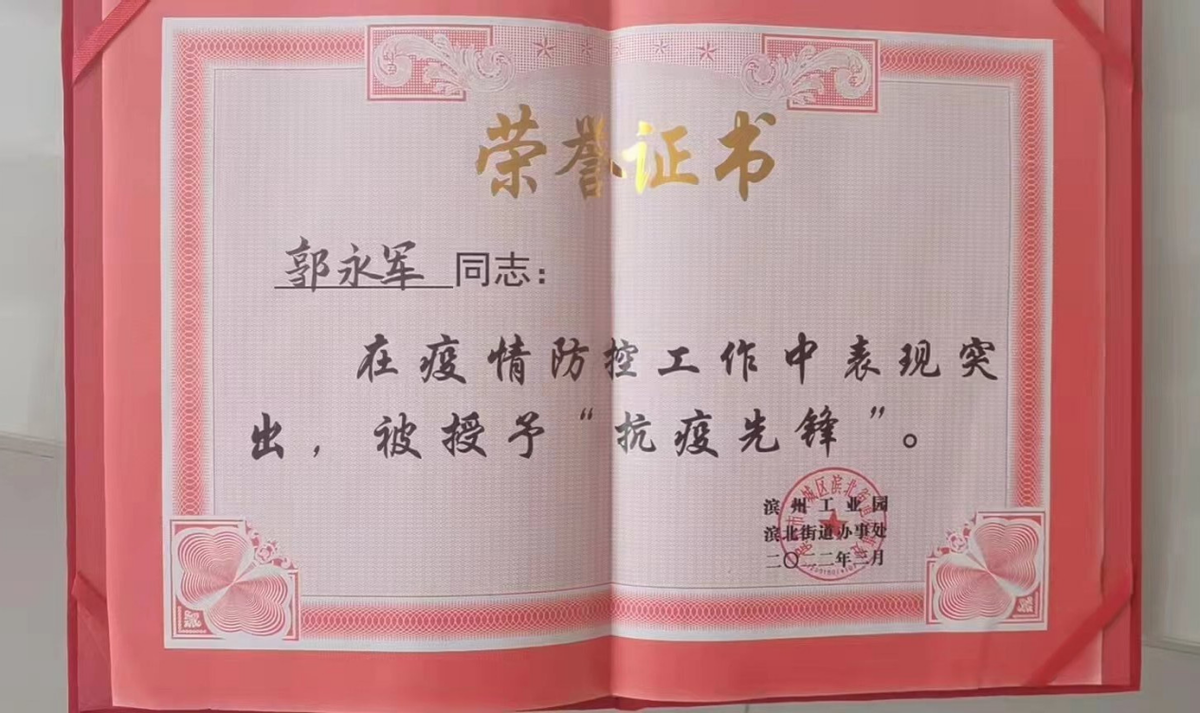 荣誉证书
郭永军 同志:
在疫情防控工作中表现突
出,被授予“抗疫先锋”。
滨州工业园
滨北街道办事处
二〇二二年三月